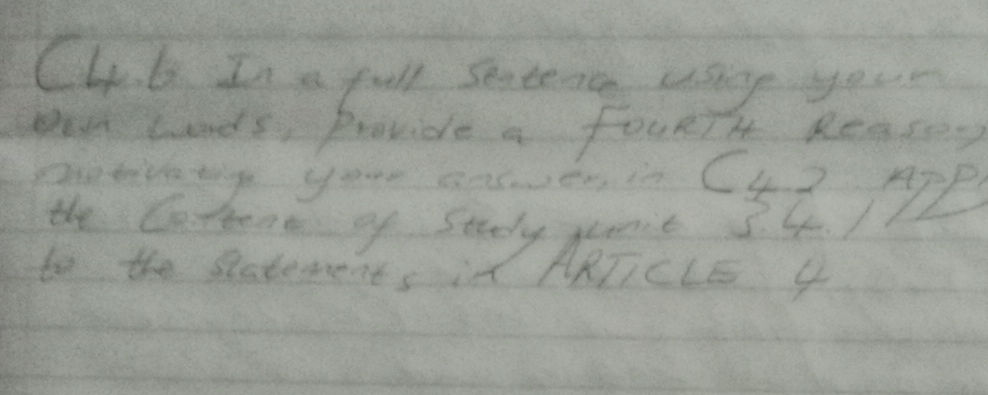 C4.6 In a full sentence using your
own words, Provide a FOURTH Reason
motivating your answer, in C42 APP
the Content of Study unit 3.4.1
to the statements in ARTICLE 4